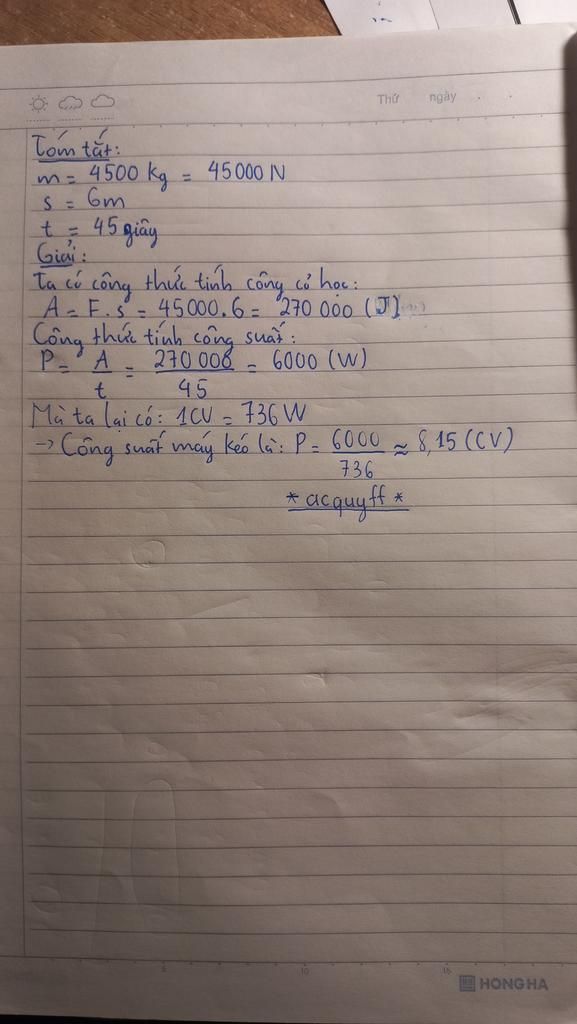 Thứ ngày
Tóm tắt:
m = 4500 kg = 45000 N
s = 6m
t = 45 giây
Giải:
Ta có công thức tính công cơ học:
A = F.s = 45000.6 = 270 000 (J)
Công thức tính công suất:
P = A/t = 270 000/45 = 6000 (W)
Mà ta lại có: 1CV = 736 W
-> Công suất máy kéo là: P = 6000/736 ≈ 8,15 (CV)
*acquyff*
5 10 15
HONG HA